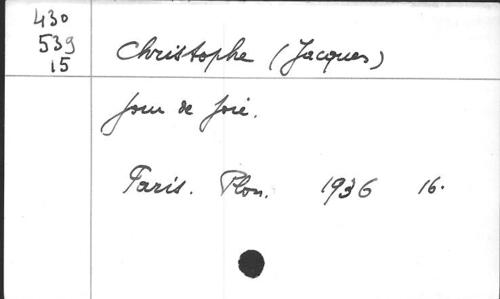 430
539
15
Christophe (Jacques)
Jour de Joie.
Paris. Plon. 1936 16.